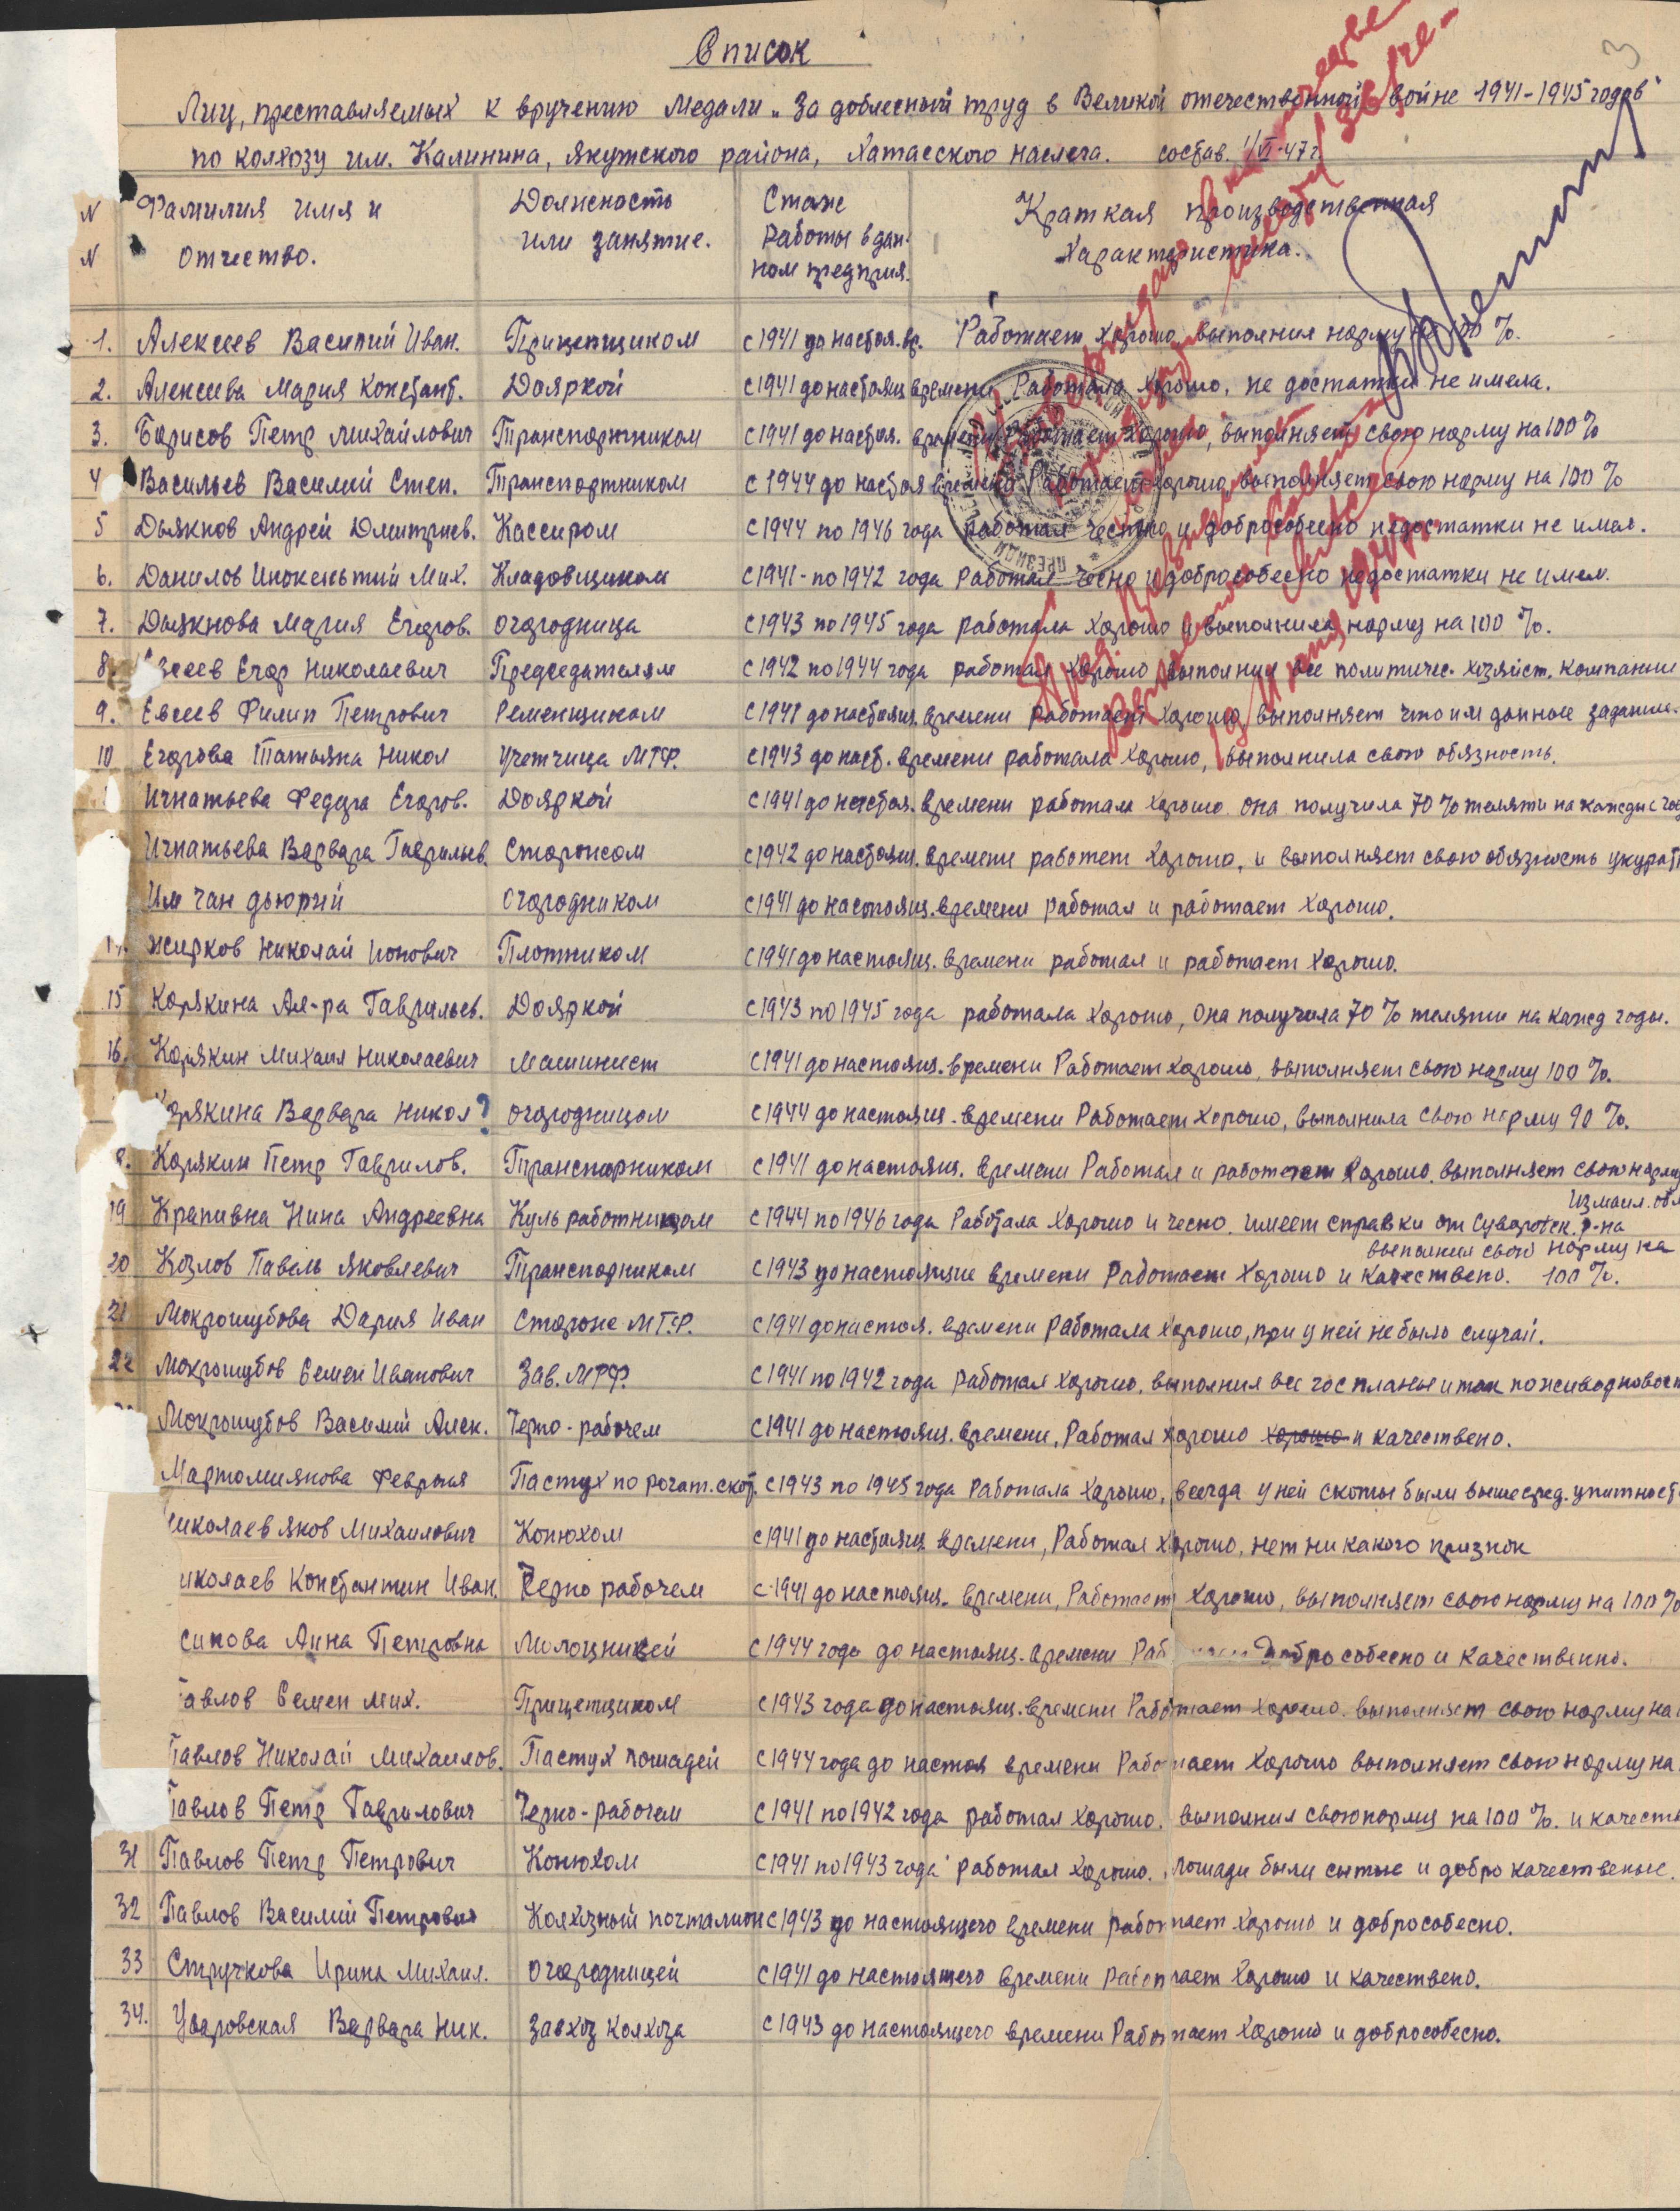 Список
Лиц, преставляемых к вручению медали „За доблесный труд в Великой отечественной войне 1941-1945 годов"
по колхозу им. Калинина, Якутского района, Хатасского наслега. состав. 1/VI-47 г.
N N Фамилия имя и отчество. Должность или занятие. Стаж работы в дан-ном предприя. Краткая производственная характеристика.
1. Алексеев Василий Иван. Прицепщиком с 1941 до настоя. вр. Работает хорошо выполнил норму на 100 %.
2. Алексеева Мария Констант. Дояркой с 1941 до настоящ времени Работала хорошо, не достатки не имела.
3. Борисов Петр Михайлович Транспортником с 1941 до настоя. времени Работает хорошо, выполняет свою норму на 100 %
4 Васильев Василий Степ. Транспортником с 1944 до настоя времени Работает хорошо выполняет свою норму на 100 %
5 Дьякнов Андрей Дмитриев. Кассиром с 1944 по 1946 года работал честно и добрособесно недостатки не имел.
6. Данилов Инокентий Мих. Кладовщиком с 1941-по 1942 года работал чесно и добрособесно недостатки не имел.
7. Дьякнова Мария Егоров. огородница с 1943 по 1945 года работала хорошо и выполнила норму на 100 %.
8 Евсеев Егор Николаевич Председателям с 1942 по 1944 года работал хорошо выполнил все политичес. хозяйст. компании
9. Евсеев Филип Петрович Ременщиком с 1941 до настоящ. времени работает хорошо выполняет что им данные задание.
10 Егорова Татьяна Никол учетчица МТФ. с 1943 до наст. времени работала хорошо, выполнила свою обязность.
Игнатьева Федора Егоров. Дояркой с 1941 до настоя. времени работала хорошо она получила 70 % теляти на каждые
Игнатьева Варвара Гаврильев. Сторожом с 1942 до настоящ. времени работет хорошо, и выполняет свою обязность
Им чан дюрий огородником с 1941 до настоящ. времени работал и работает хорошо.
Жирков Николай Ионович Плотником с 1941 до настоящ. времени работал и работает хорошо.
15 Корякина Ал-ра Гаврильев. Дояркой с 1943 по 1945 года работала хорошо, она получила 70 % теляти на кажд годы.
16. Корякин Михаил Николаевич Машинист с 1941 до настоящ. времени Работает хорошо, выполняет свою норму 100 %.
Корякина Варвара Никол ? огородницом с 1944 до настоящ. времени Работает хорошо, выполнила свою норму 90 %.
8. Корякин Петр Гаврилов. Транспорником с 1941 до настоящ. времени Работал и работает хорошо. выполняет свою норму
19 Крапивна Нина Андреевна Культ работницом с 1944 по 1946 года Работала хорошо и чесно. имеет справки от Суворовск. р-на Измаил. обл
20 Козлов Павель Яковлевич Транспорником с 1943 до настоящие времени Работает хорошо и качествено. выполнил свою норму на 100 %.
21 Мокрошубова Дария Иван Сторож МТФ. с 1941 до настоя. времени работала хорошо, при у ней не было случай.
22 Мокрошубов Семен Иванович Зав. МТФ. с 1941 по 1942 года работал хорошо. выполнил все гос планы и так по
Мокрошубов Василий Алек. Черно-рабочем с 1941 до настоящ. времени, Работал хорошо хорошо и качествено.
Мартомиянова Феврония Пастух по рогат. скот. с 1943 по 1945 года Работала хорошо, всегда у ней скоты были выше сред. упитност
иколаев Яков Михаилович Конюхом с 1941 до настоящ времени, Работал хорошо, нет ни какого признок
иколаев Константин Иван. Черно рабочем с 1941 до настоящ. времени, Работает хорошо, выполняет свою норму на 100 %
сипова Анна Петровна Молоцницей с 1944 года до настоящ. времени Раб добро собесно и качественно.
авлов Семен Мих. Прицепщиком с 1943 года до настоящ. времени Работает хорошо. выполняет свою норму на
Павлов Николай Михаилов. Пастух лошадей с 1944 года до настоя времени Работает хорошо выполняет свою норму на
Павлов Петр Гаврилович Черно-рабочем с 1941 по 1942 года работал хорошо. выполнил свою норму на 100 %. и качеств
31 Павлов Петр Петрович Конюхом с 1941 по 1943 года работал хорошо. Лошади были сытые и добро качественые.
32 Павлов Василий Петрович Колхозный почталион с 1943 до настоящего времени работает хорошо и добрособесно.
33 Стручкова Ирина Михаил. огородницей с 1941 до настоящего времени работает хорошо и качествено.
34. Уваровская Варвара Ник. завхоз колхоза с 1943 до настоящего времени Работает хорошо и добрособесно.